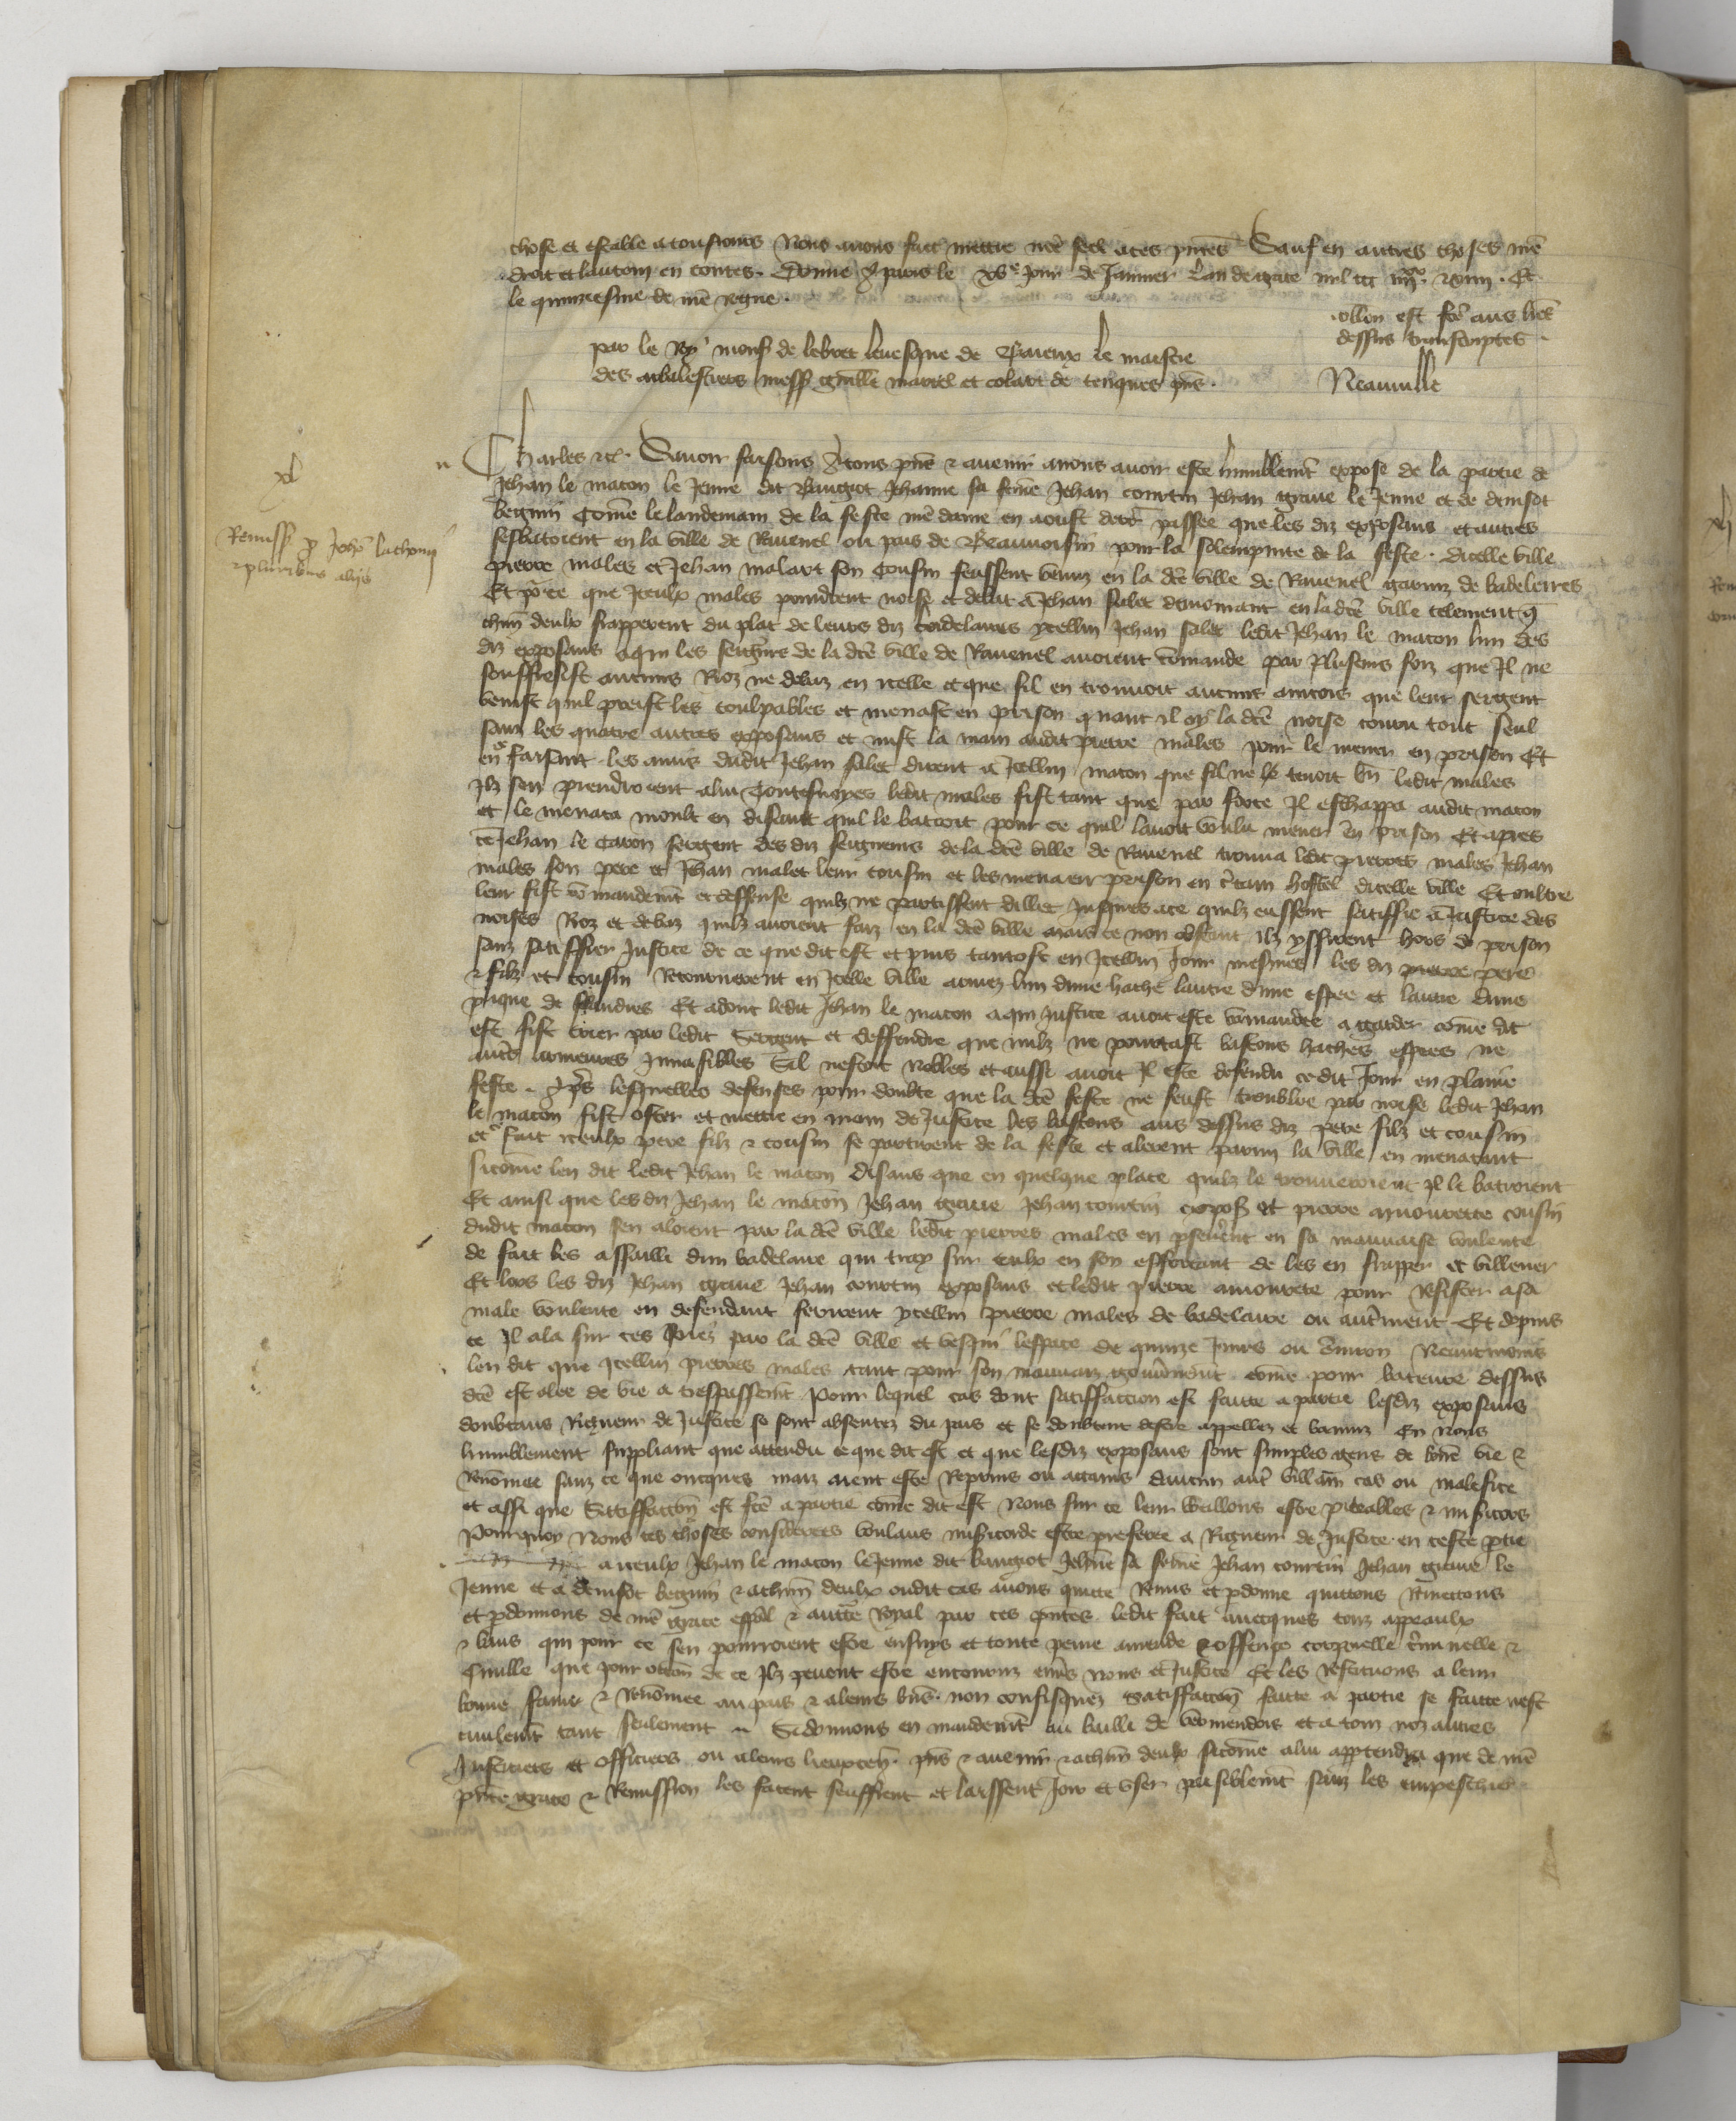 chose et estable a tousiours Nous auons fait mettre nre seel a ces pntes Sauf en autres choses nre
droit et lautruy en toutes. Donne a paris le xve Jour de Januier Lan de grace mil ccc iiiixx et xiiii. Et
le quinziesme de nre regne.
collon est fce aus lres
dessus transcriptes.
par le Roy mons de lebret leuesque de Baieux le maistre
des arbalestriers mess guille martel et colart de tanques pns.
Neauuille
xl
Charles etc. Sauoir faisons a tous pns et auenir a nous auoir este humblemt expose de la partie de
Jehan le macon le Jeune dit Baugiot Jehanne sa feme Jehan courtin Jehan graue le Jeune et de denisot
beguin Come le landemain de la feste nre dame en aoust derr passee que les diz exposans et autres
Remiss p Johe lathomi
et pluribus aliis
sesbatoient en la ville de Rauenel ou pais de Beauuoisin pour la solempnite de la feste. dicelle ville
pierre males et Jehan malart son cousin feussent venuz en la dce ville de Rauenel garniz de badeleires
Et pce que Iceulx males prindrent noise et debat a Jehan salet demourant en ladce ville telement q
chun deulx frapperent du plat de leurs diz badelaires ycellui Jehan salet ledit Jehan le macon lun des
diz exposans a qui les seigurs de la dce ville de Rauenel auoient comande par plusieurs foiz que Il ne
souffresist aucuns Rioz ne debaz en icelle et que sil en trouuoit aucuns aincois que leur sergent
venist quil preist les coulpables et menast en prison quant il oy la dce noise couru tout seul
sanz les quatre autres exposans et mist la main audit pierre males pour le mener en prison Et
en ce faisant les amis dudit Jehan salet dirent a Icellui macon que sil ne le tenoit bn ledit males
Ilz sen prendroient a lui Toutesuoyes ledit males fist tant que par force Il eschappa audit macon
et le menaca moult en disant quil le batroit pour ce quil lauoit voulu mener en prison Et apres
ce Jehan le caron sergent des diz seigneurs de la dce ville de Rauenel trouua ledit pierres males Jehan
males son pere et Jehan malet leur cousin et les mena en prison en ctain hostel dicelle ville Et oultre
leur fist comandemt et deffense quilz ne partissent dillec Jusques a ce quilz eussent satisffie a Justice des
noises Rioz et debaz quilz auoient faiz en la dce ville mais ce non obstant ilz yssirent hors de prison
sanz satisffier Justice de ce que dit est et puis tantost en Icellui Jour mesmes les diz pierre pere
et filz et cousin Retournerent en Icelle ville armez lun dune hache lautre dune espee et lautre dune
pique de flandres Et adont ledit Jehan le macon a qui Justice auoit este comandee a garder come dit
est fist crier par ledit Sergent et deffendre que nulz ne portast bastons haches espees ne
autres armeures Inuasibles Sil nestoit Nobles et aussi auoit Il este defendu ce dit Jour en plaine
feste. Aps lesquelles defenses pour doubte que la dce feste ne feust troublee par noise ledit Jehan
le macon fist oster et mettre en main de Justice les bastons aus dessus diz pere filz et cousin
et ce fait iceulx pere filz et cousin se partirent de la feste et alerent parmi la ville en menacant
sicome len dit ledit Jehan le macon disans que en quelque place quilz le trouueroient Il le batroient
Et ainsi que les diz Jehan le macon Jehan graue Jehan courtin expos et pierre amourette cousin
dudit macon sen aloient par la dce ville ledit pierres males en pseuerent en sa mauuaise voulente
de fait les assailli dun badelaire qui tray sur eulx en son efforcant de les en frapper et villener
Et lors les diz Jehan graue Jehan courtin exposans et ledit pierre amourete pour resister a sa
male voulente en defendant ferirent ycellui pierre males de badelaire ou autrment Et depuis
ce Il ala sur ces piez par la dce ville et vesqui lespace de quinze Jours ou enuiron Neantmoins
len dit que Icellui pierres males tant pour son mauuaiz gouunemt come pour bateure dessus
dce est alee de vie a trespassemt Pour lequel cas dont satisffaction est faitte a partie lesdiz exposans
doubtans Rigueur de Justice se sont absentez du pais et se doubtent destre appellez et banniz En nous
humblement suppliant que attendu ce que dit est et que lesdiz exposans sont simples gens de bone vie et
Renomee sanz ce que oncques maiz aient este Reprins ou attains daucun autr villain cas ou malefice
et assi que Satisffaccon est fce a partie come dit est Nous sur ce leur vueillons estre piteables et misicors
Pourquoy Nous ces choses considerees voulans misicorde estre preferee a Rigueur de Justice en ceste ptie
a iceulx Jehan le macon le Jeune dit baugiot Jehne sa feme Jehan courtin Jehan graue le
Jeune et a denisot beguin et a chun deulx oudit cas auons quitte Remis et pdonne quittons Remettons
et pdonnons de nre grace espal et auttre Royal par ces pntes ledit fait auecques touz appeaulx
et bans qui pour ce sen pourroient estre ensuys et toute peine amende et offense corporelle criminelle et
Ciuille que pour occon de ce Ilz peuent estre encouruz enus nous et Justice Et les Restituons a leur
bonne fame et Renomee au pais et a leurs bns non confisquez Satisffaccon faitte a partie se faitte nest
ciuilemt tant seulement Si donnons en mandemt au bailli de vermendois et a touz noz autres
Justiciers et officiers ou a leurs lieuxten. pns et auenir et a chun deulx sicome a lui appartendra que de nre
pnte grace et Remission les facent seuffrent et laissent Joir et vser paisiblemt sanz les empeschier